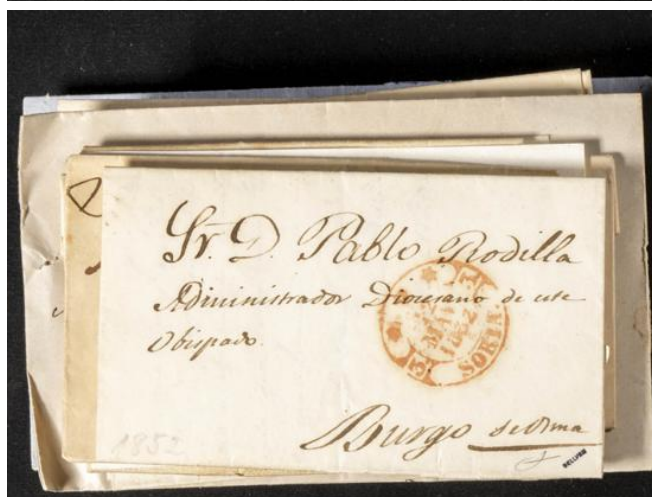 Sr. D. Pablo Rodilla
Administrador Diocesano de este
Obispado.
MAY
1852
SORIA
Burgo de Osma
1852